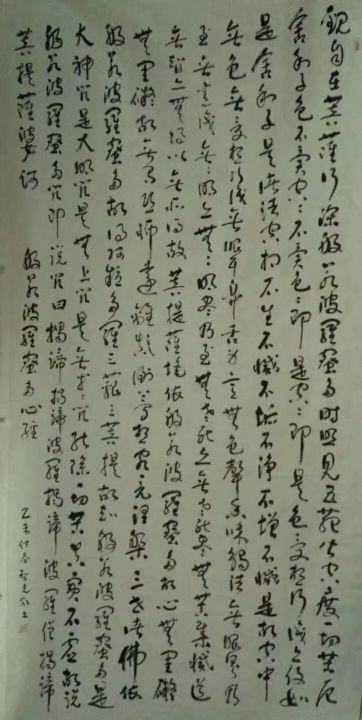 觀自在菩薩行深般若波羅蜜多時照見五蘊皆空度一切苦厄
舍利子色不異空空不異色色即是空空即是色受想行識亦復如
是舍利子是諸法空相不生不滅不垢不淨不增不減是故空中
無色無受想行識無眼耳鼻舌身意無色聲香味觸法無眼界乃
至無意識無無明亦無無明盡乃至無老死亦無老死盡無苦集滅道
無智亦無得以無所得故菩提薩埵依般若波羅蜜多故心無罣礙
無罣礙故無有恐怖遠離顛倒夢想究竟涅槃三世諸佛依
般若波羅蜜多故得阿耨多羅三藐三菩提故知般若波羅蜜多是
大神咒是大明咒是無上咒是無等等咒能除一切苦真實不虛故說
般若波羅蜜多咒即說咒曰揭諦揭諦波羅揭諦波羅僧揭諦
菩提薩婆訶 般若波羅蜜多心經 乙未仲春